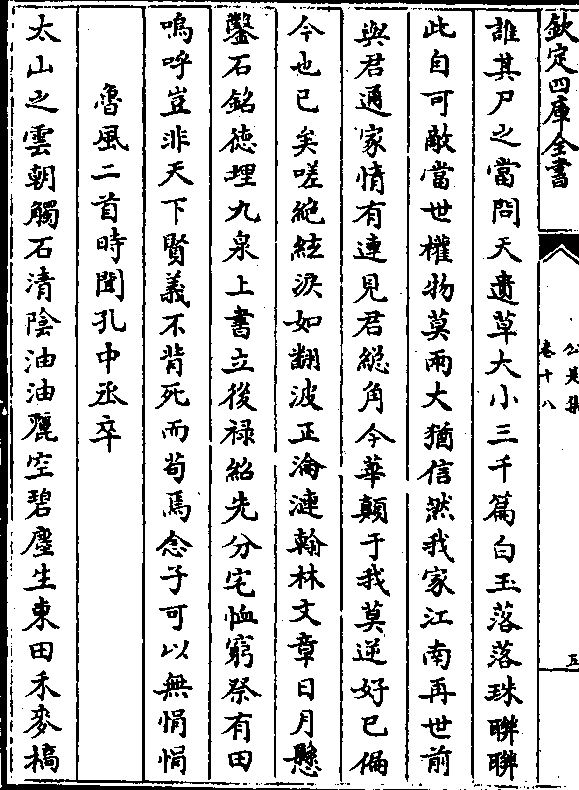 欽定四庫全書
公是集
卷十八
五
誰其尸之當問天遺草大小三千篇白玉落落珠聯聯
此自可敵當世權物莫兩大猶信然我家江南再世前
與君通家情有連見君總角今華顛于我莫逆好已偏
今也已矣嗟絶絃淚如翻波正淪漣翰林文章日月懸
鑿石銘德埋九泉上書立後禄紹先分宅恤窮祭有田
嗚呼豈非天下賢義不背死而苟焉念子可以無悁悁
魯風二首時聞孔中丞卒
太山之雲朝觸石清陰油油麗空碧塵生東田禾麥槁